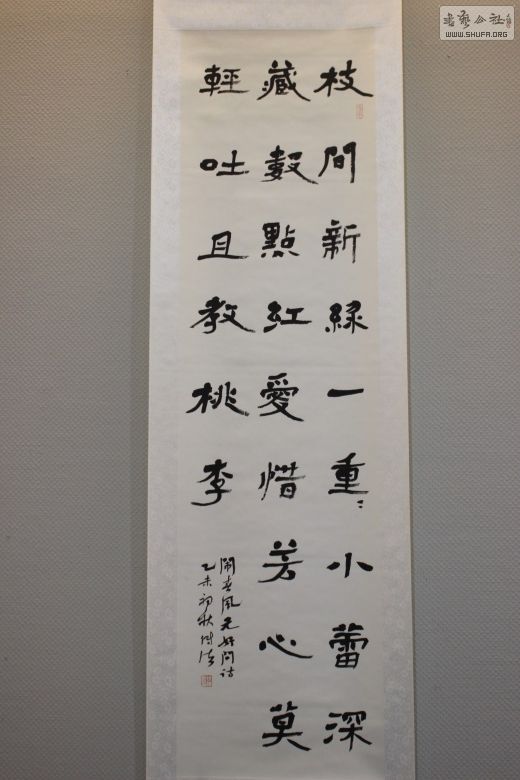 枝間新綠一重〻小蕾深
藏數點紅愛惜芳心莫
輕吐且教桃李
鬧春風元好問诗
乙未初秋
书艺公社
WWW.SHUFA.ORG